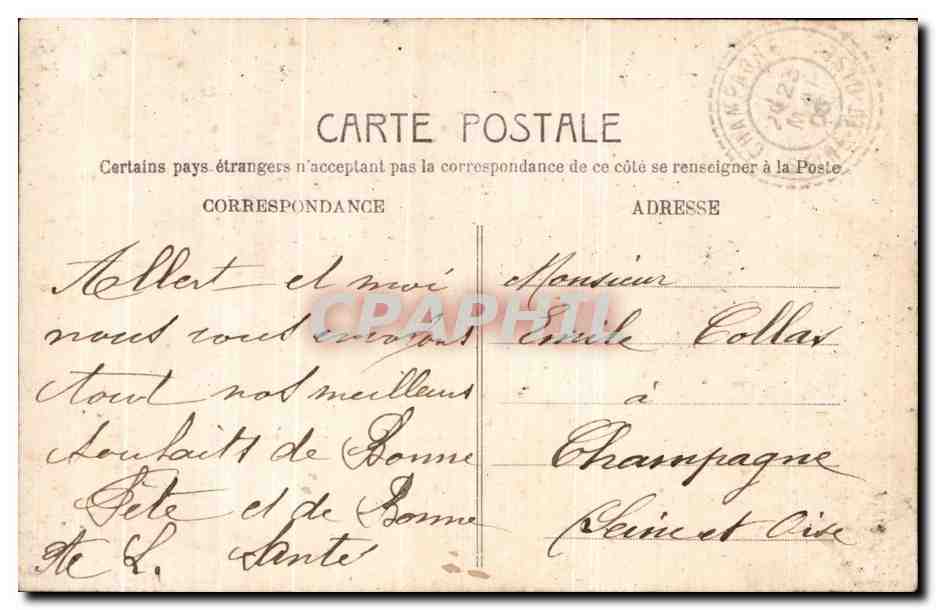 CARTE POSTALE
Certains pays étrangers n'acceptent pas la correspondance de ce côté se renseigner à la Poste
CORRESPONDANCE
Albert et moi
nous vous envoyons
tout nos meilleurs
souhaits de Bonne
Fête et de Bonne
Santé
L.
ADRESSE
Monsieur
Emile Collas
à
Champagne
(Seine et Oise
CHAMPAGNE
CPAPHIL